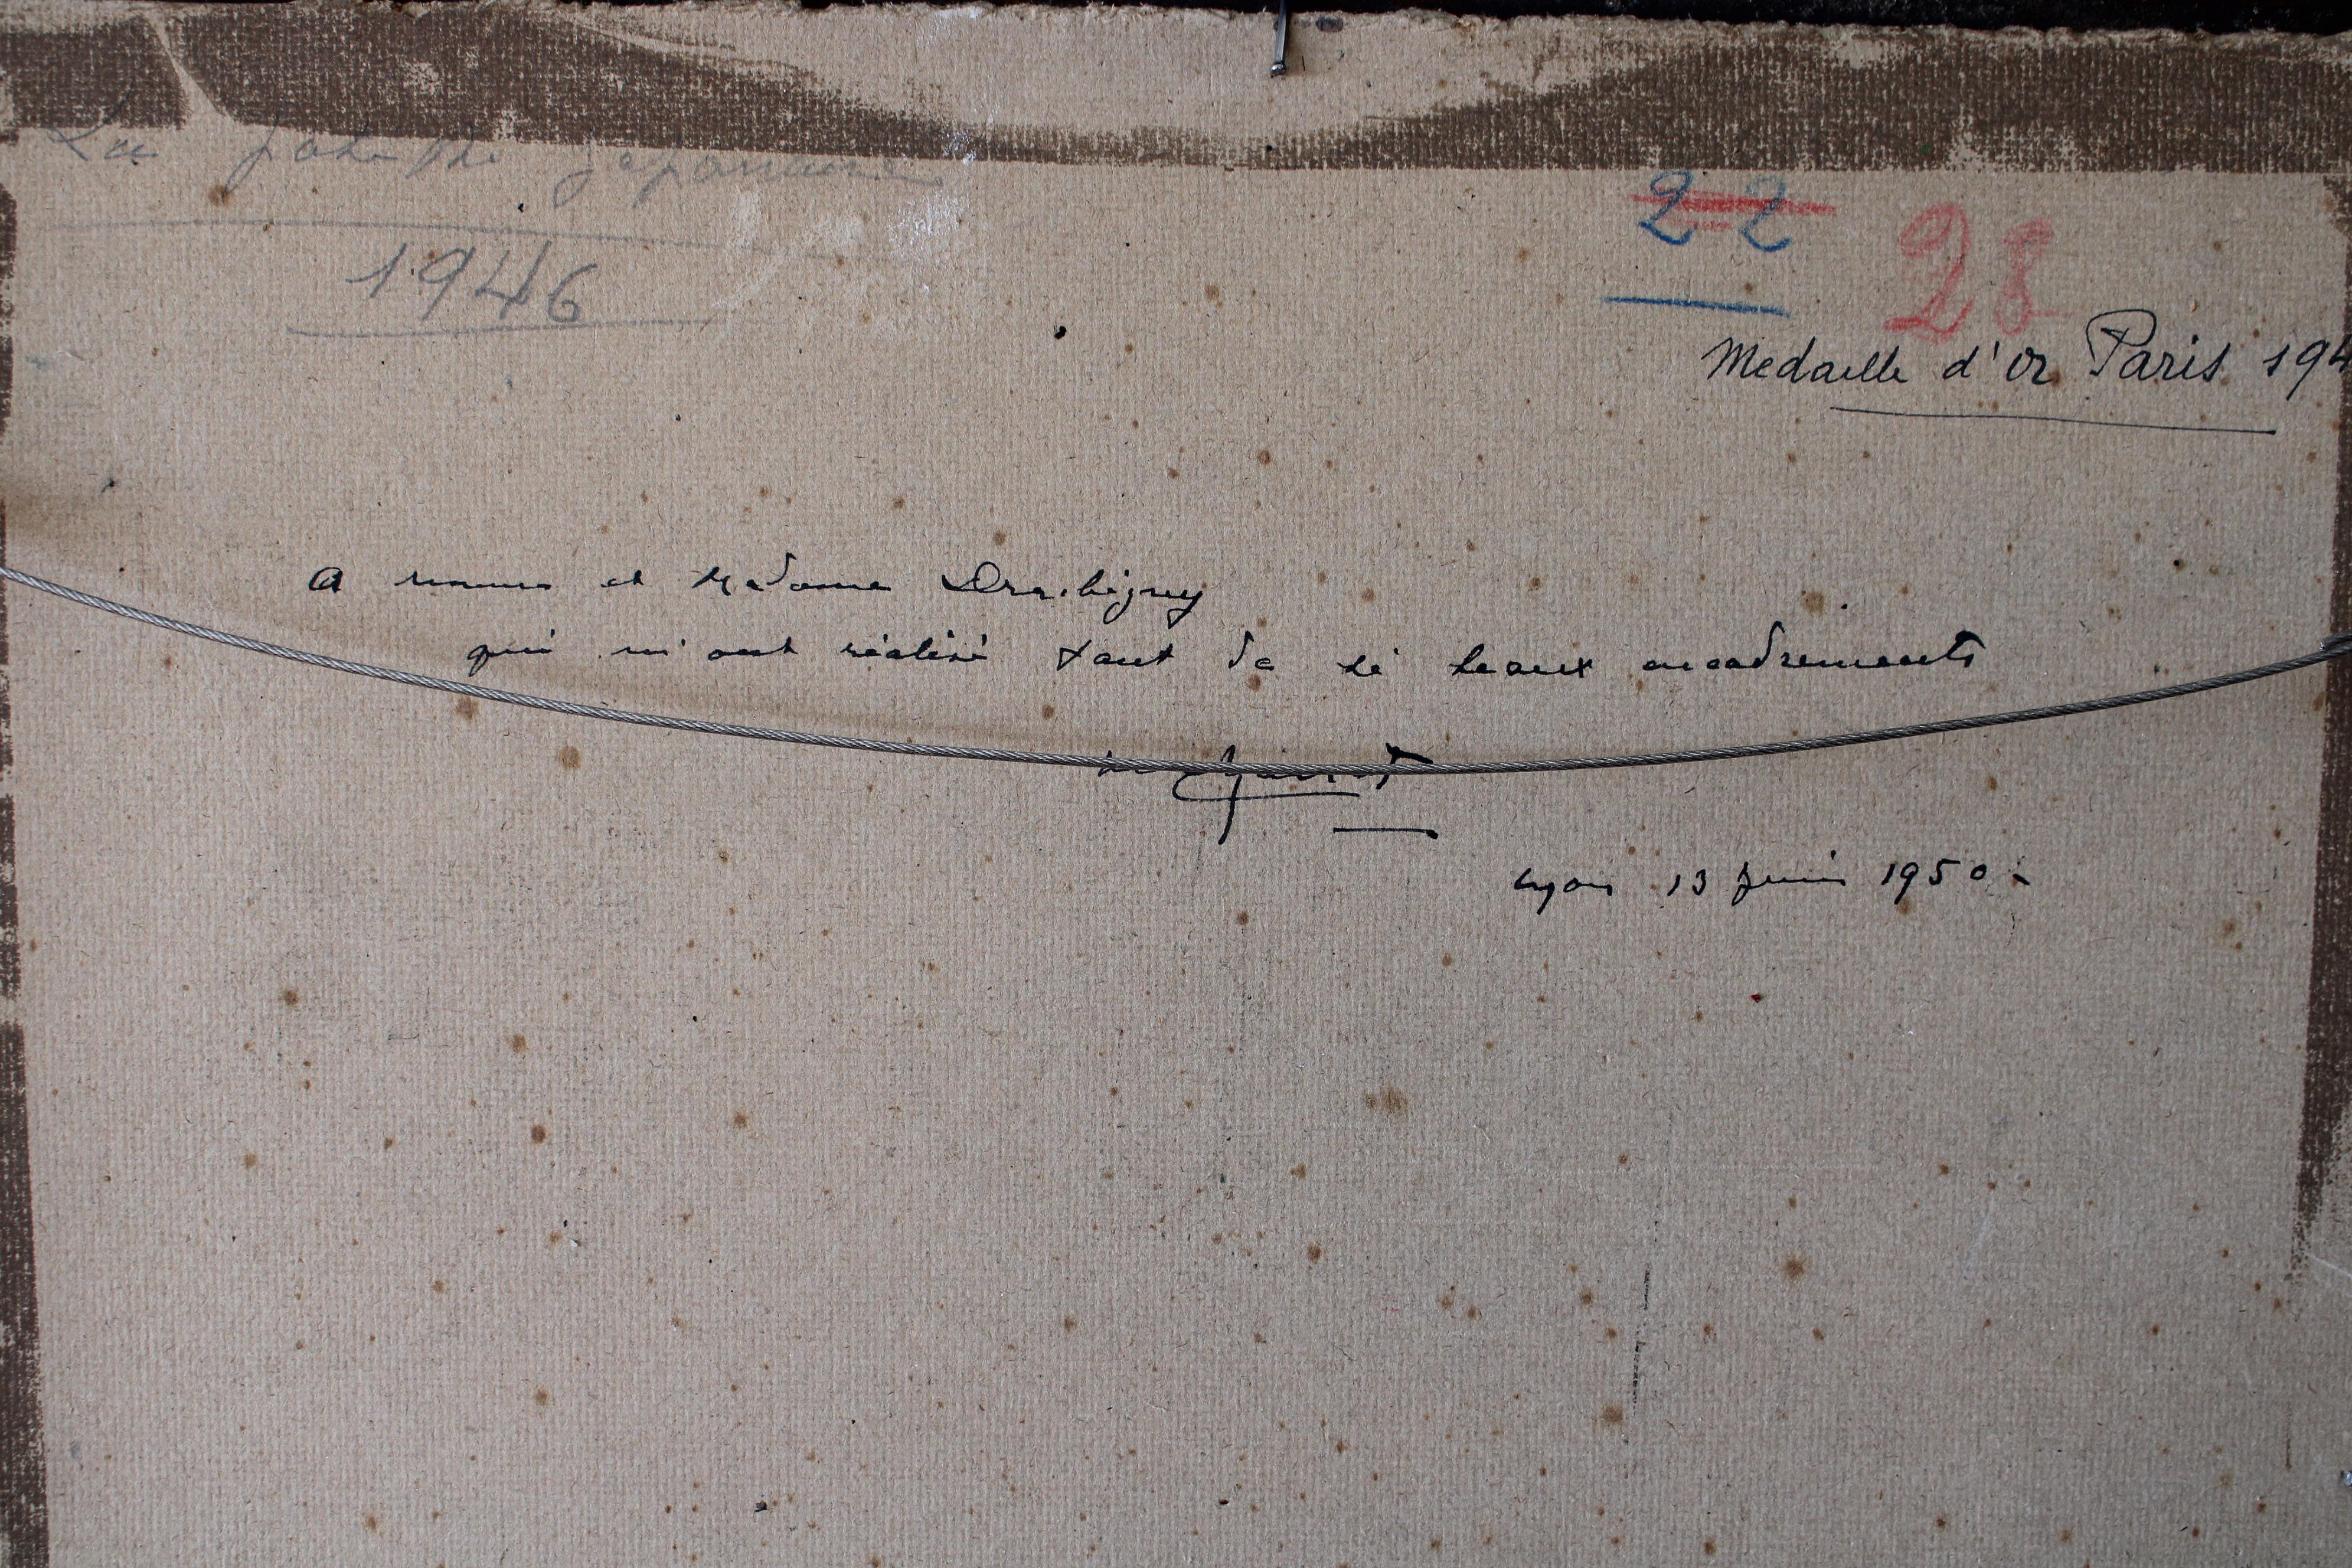 La japonaise
1946
22
28
Medaille d'or Paris 194
A et Madame
qui m'ont réalisé tant de si beaux encadrements
Lyon 13 juin 1950